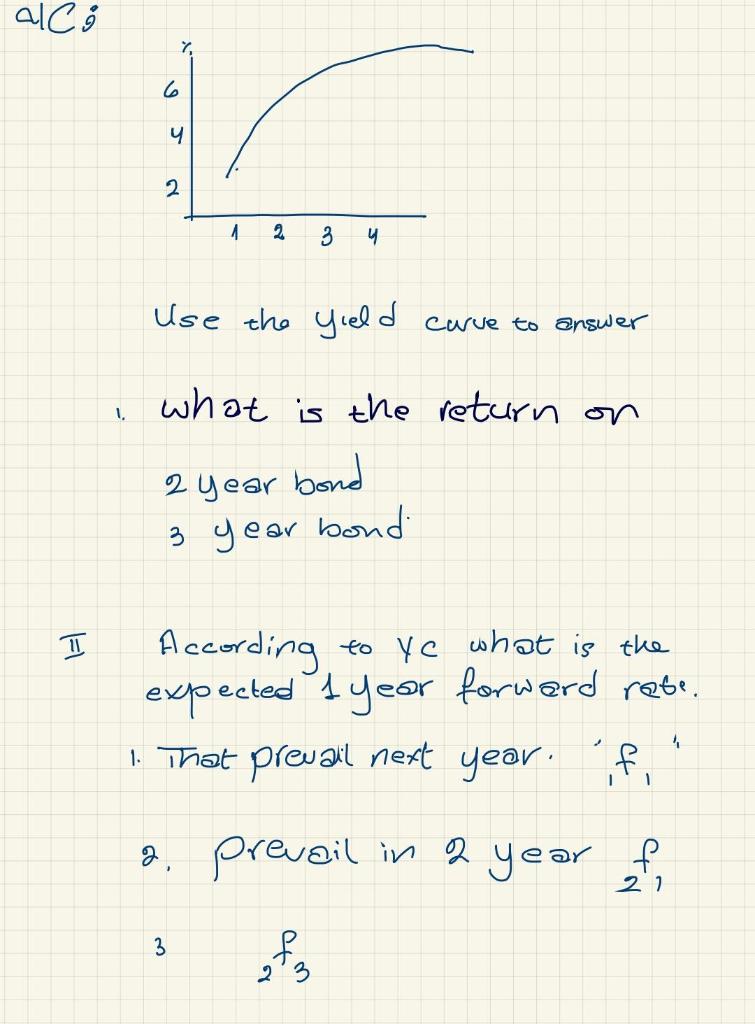 a/C:
%
6
4
2
1 2 3 4
Use the yield curve to answer
1. what is the return on
2 year bond
3 year bond
II According to YC what is the
expected 1 year forward rate.
1. That prevail next year. '₁f₁'
2. prevail in 2 year ₂f₁
3 ₂f₃